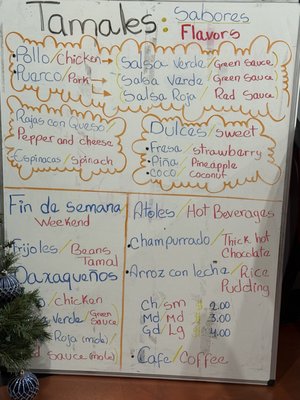 Tamales: Sabores
Flavors
• Pollo/Chicken → Salsa Verde/Green Sauce
• Puerco/Pork → Salsa Verde/Green Sauce
→ Salsa Roja/Red Sauce
Rajas con Queso
Pepper and cheese
Espinacas/Spinach
Dulces/sweet
• Fresa/strawberry
• Piña/Pineapple
• coco/coconut
Fin de semana
Weekend
Frijoles/Beans
Tamal
Oaxaqueños
/chicken
Verde/Green
Sauce
Roja (mole)/
Sauce (mole)
Atoles/Hot Beverages
• Champurrado/Thick hot
Chocolate
• Arroz con leche/Rice
Pudding
Ch/sm $ 2.00
Md/Md $ 3.00
Gd/Lg $ 4.00
• Cafe/Coffee